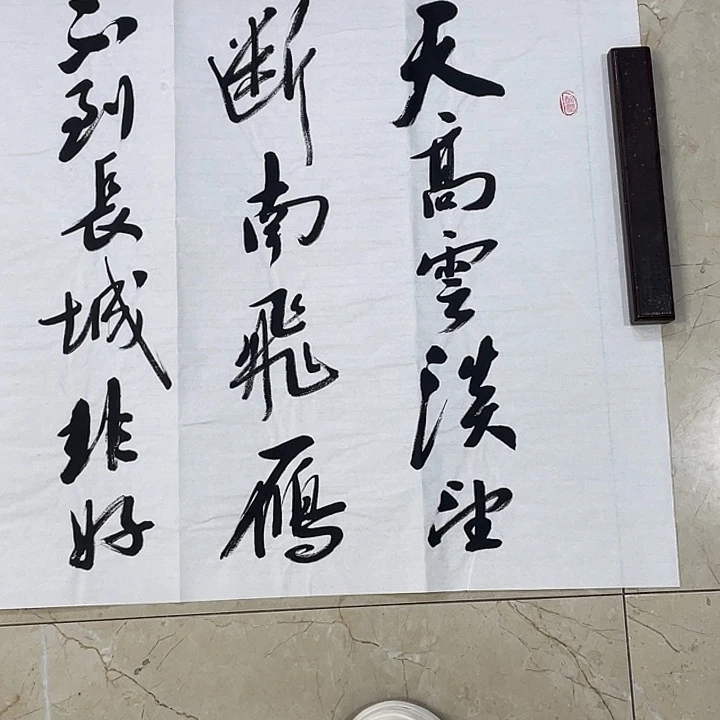 天高雲淡望
断南飛雁
不到長城非好